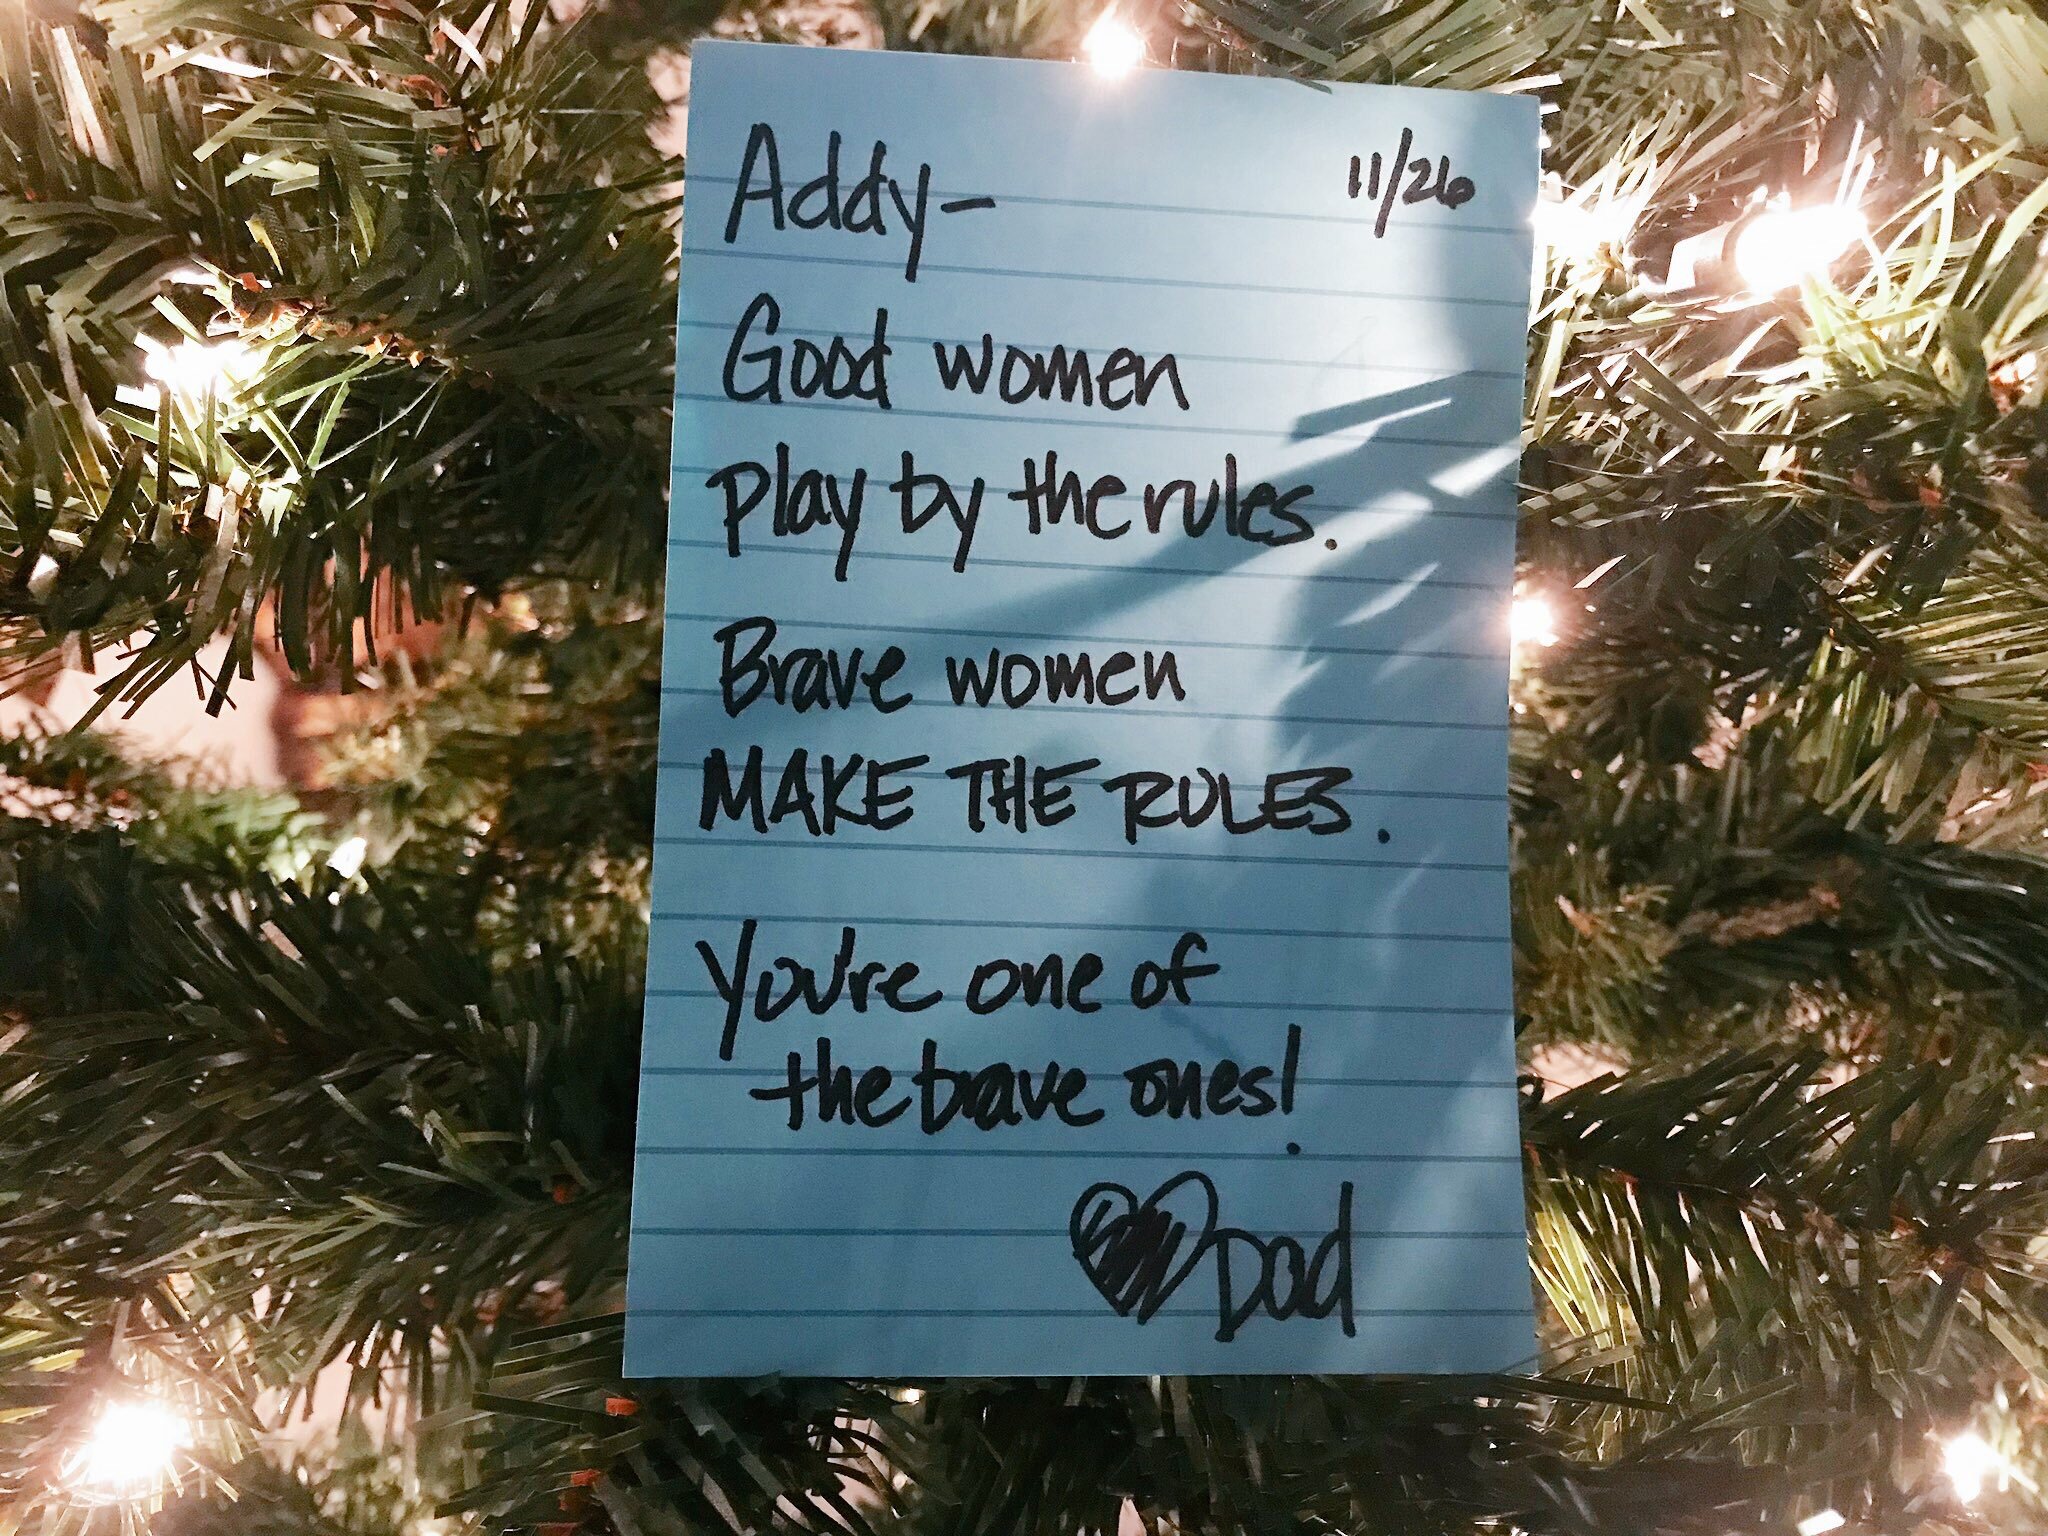 Addy- 11/26
Good women
play by the rules.
Brave women
MAKE THE RULES.
You're one of
the brave ones!
Dad